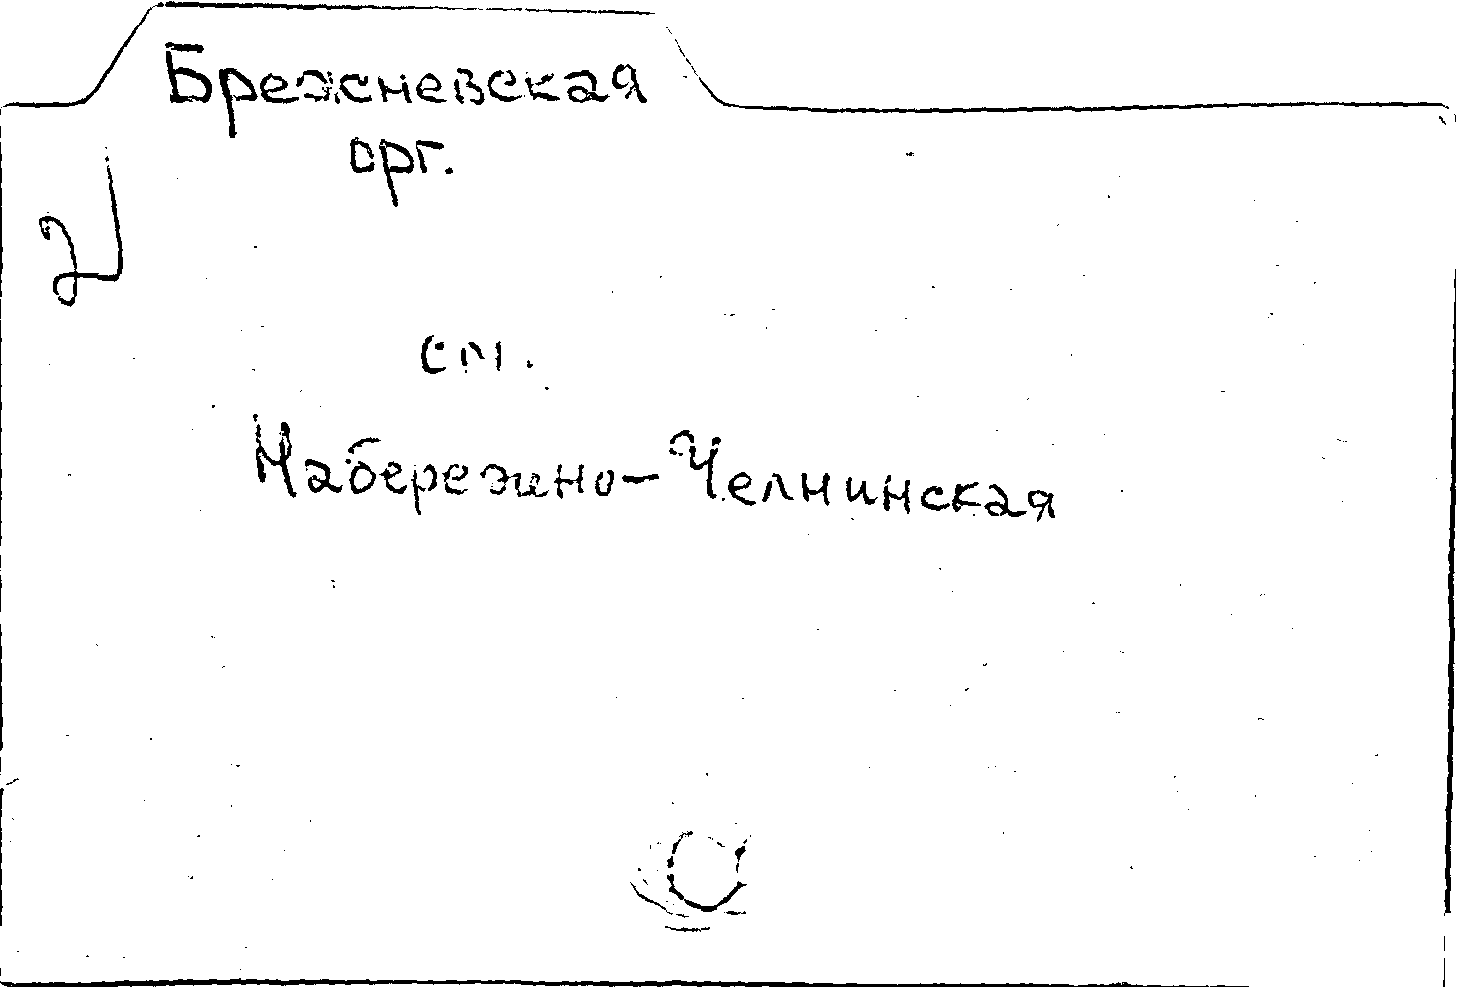 Брежневская
орг.
см.
Набережно-Челнинская